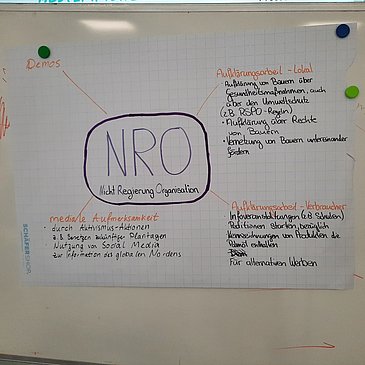 Demos
Aufklärungsarbeit - Lokal
• Aufklärung von Bauern über
Gesundheitsmaßnahmen, auch
über den Umweltschutz
(z.B. RSPO-Regeln)
• Aufklärung über Rechte
von Bauern
• Vernetzung von Bauern untereinander
fördern
NRO
Nicht Regierung Organisation
mediale Aufmerksamkeit
• durch Aktivismus-Aktionen
z.B. Besetzen zukünftiger Plantagen
• Nutzung von Social Media
zur Information des globalen Nordens
Aufklärungsarbeit - Verbraucher
Infoveranstaltungen (z.B. Schulen)
Petitionen starten, bezüglich
Kennzeichnungen von Produkten die
Palmöl enthalten
Für alternativen Werben
SCHÄFER
SHOP